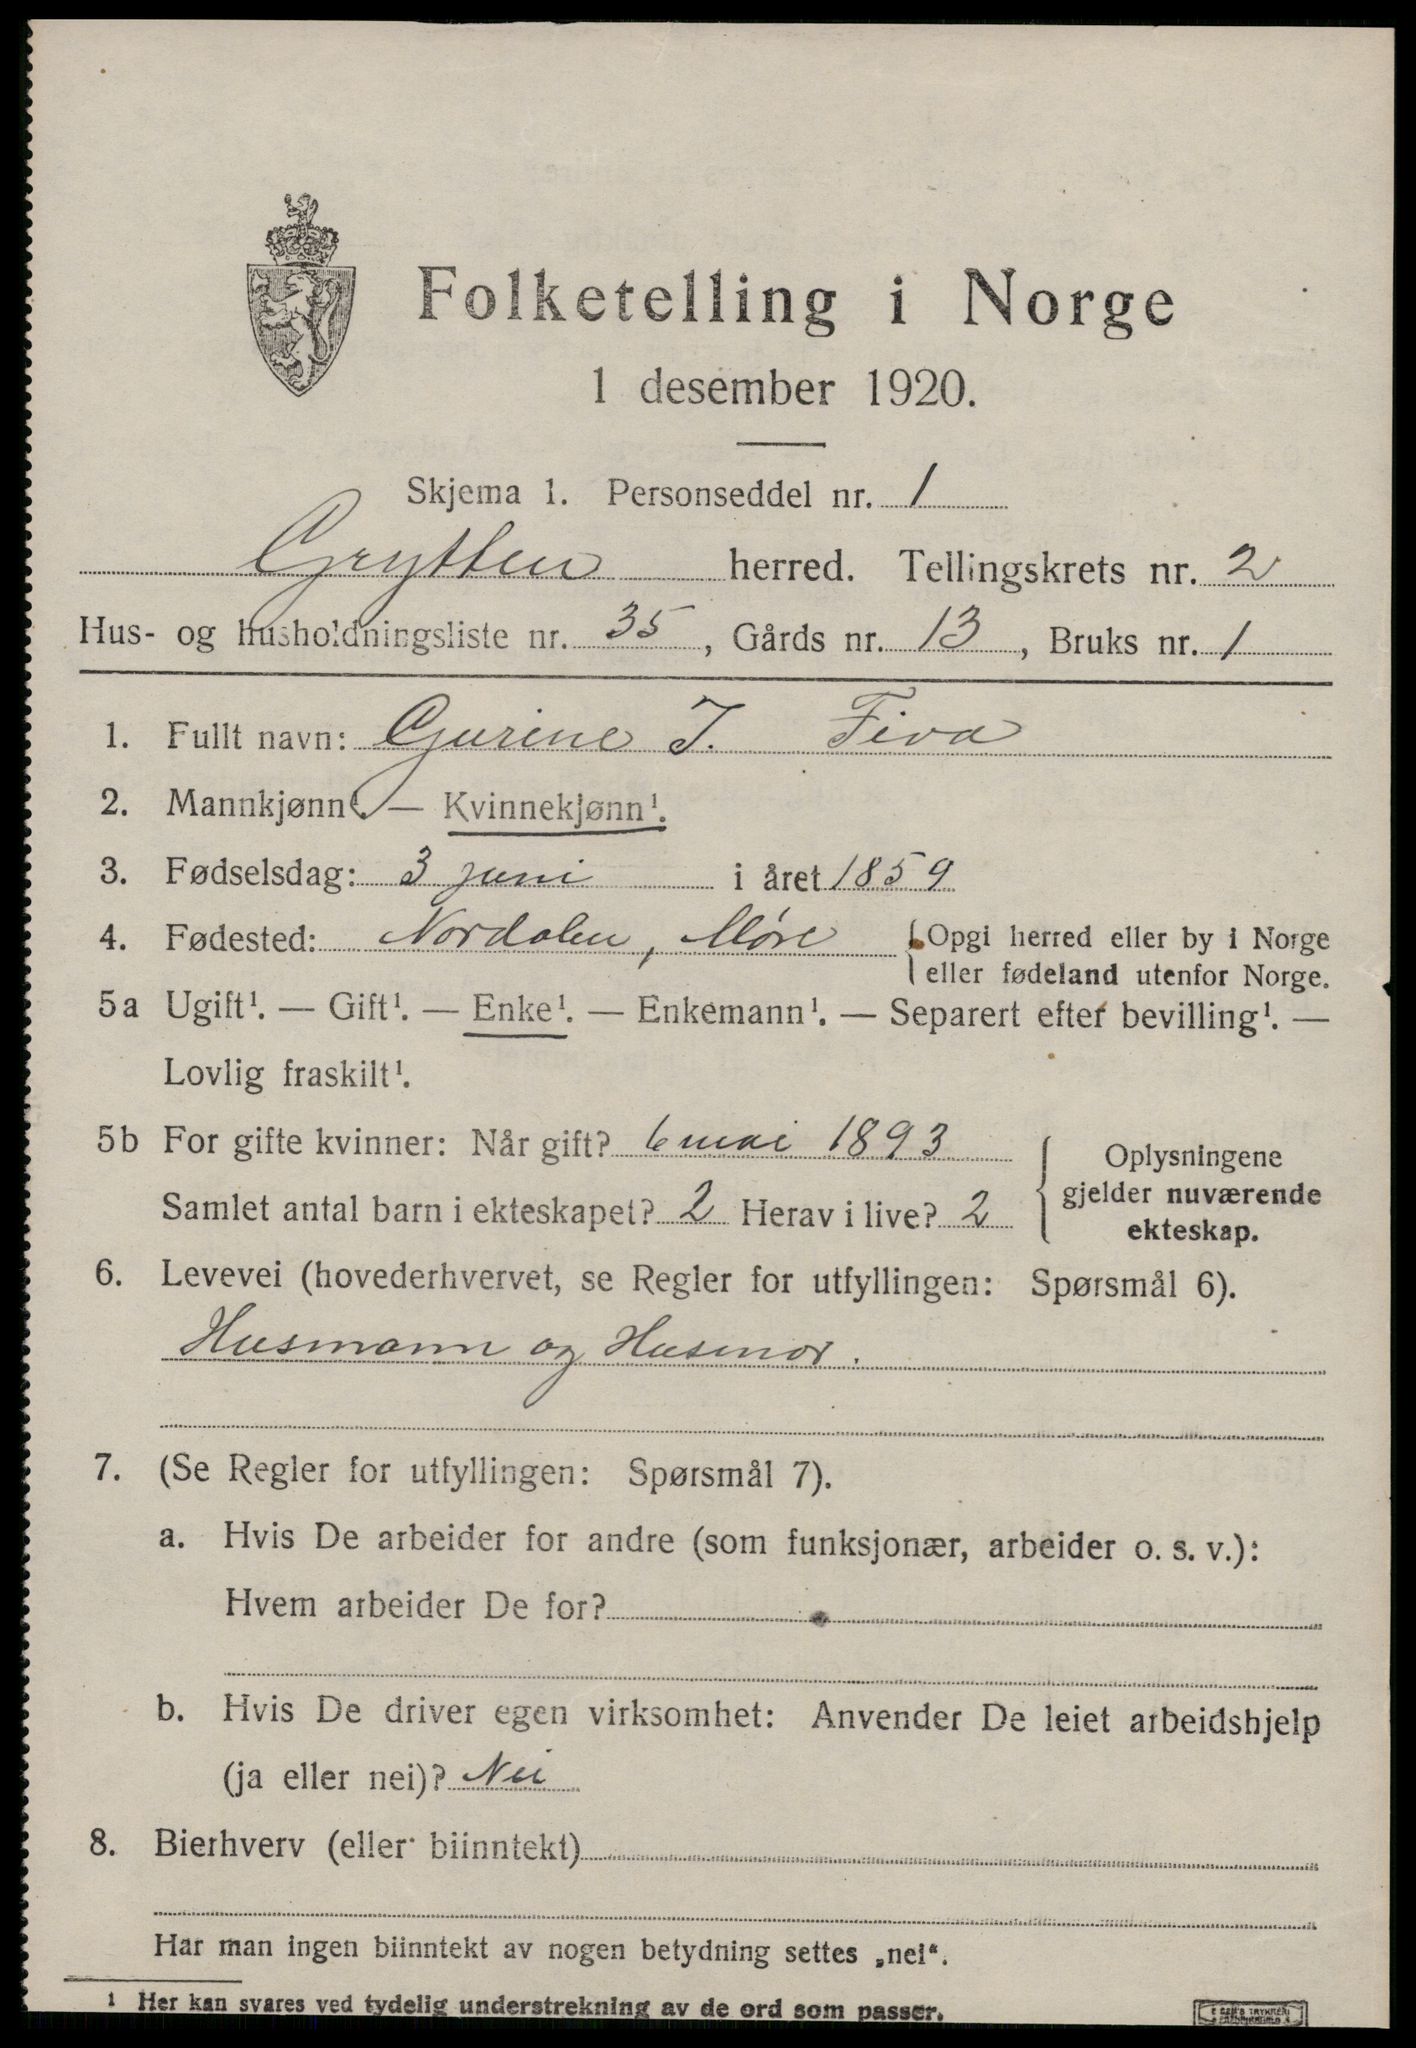 Folketelling i Norge
1 desember 1920.
Skjema 1. Personseddel nr. 1
Grytten herred. Tellingskrets nr. 2
Hus- og husholdningsliste nr. 35, Gårds nr. 13, Bruks nr. 1
1. Fullt navn: Gurine J. Fiva
2. Mannkjønn¹. — Kvinnekjønn¹.
3. Fødselsdag: 3 juni i året 1859
4. Fødested: Nordalen, Møre {Opgi herred eller by i Norge
eller fødeland utenfor Norge.
5a Ugift¹. — Gift¹. — Enke¹. — Enkemann¹. — Separert efter bevilling¹. —
Lovlig fraskilt¹.
5b For gifte kvinner: Når gift? 6 mai 1893
Samlet antal barn i ekteskapet? 2 Herav i live? 2
Oplysningene
gjelder nuværende
ekteskap.
6. Levevei (hovederhvervet, se Regler for utfyllingen: Spørsmål 6).
Husmann og Husmor.
7. (Se Regler for utfyllingen: Spørsmål 7).
a. Hvis De arbeider for andre (som funksjonær, arbeider o. s. v.):
Hvem arbeider De for?
b. Hvis De driver egen virksomhet: Anvender De leiet arbeidshjelp
(ja eller nei)? Nei
8. Bierhverv (eller biinntekt)
Har man ingen biinntekt av nogen betydning settes „nei“.
¹ Her kan svares ved tydelig understrekning av de ord som passer.